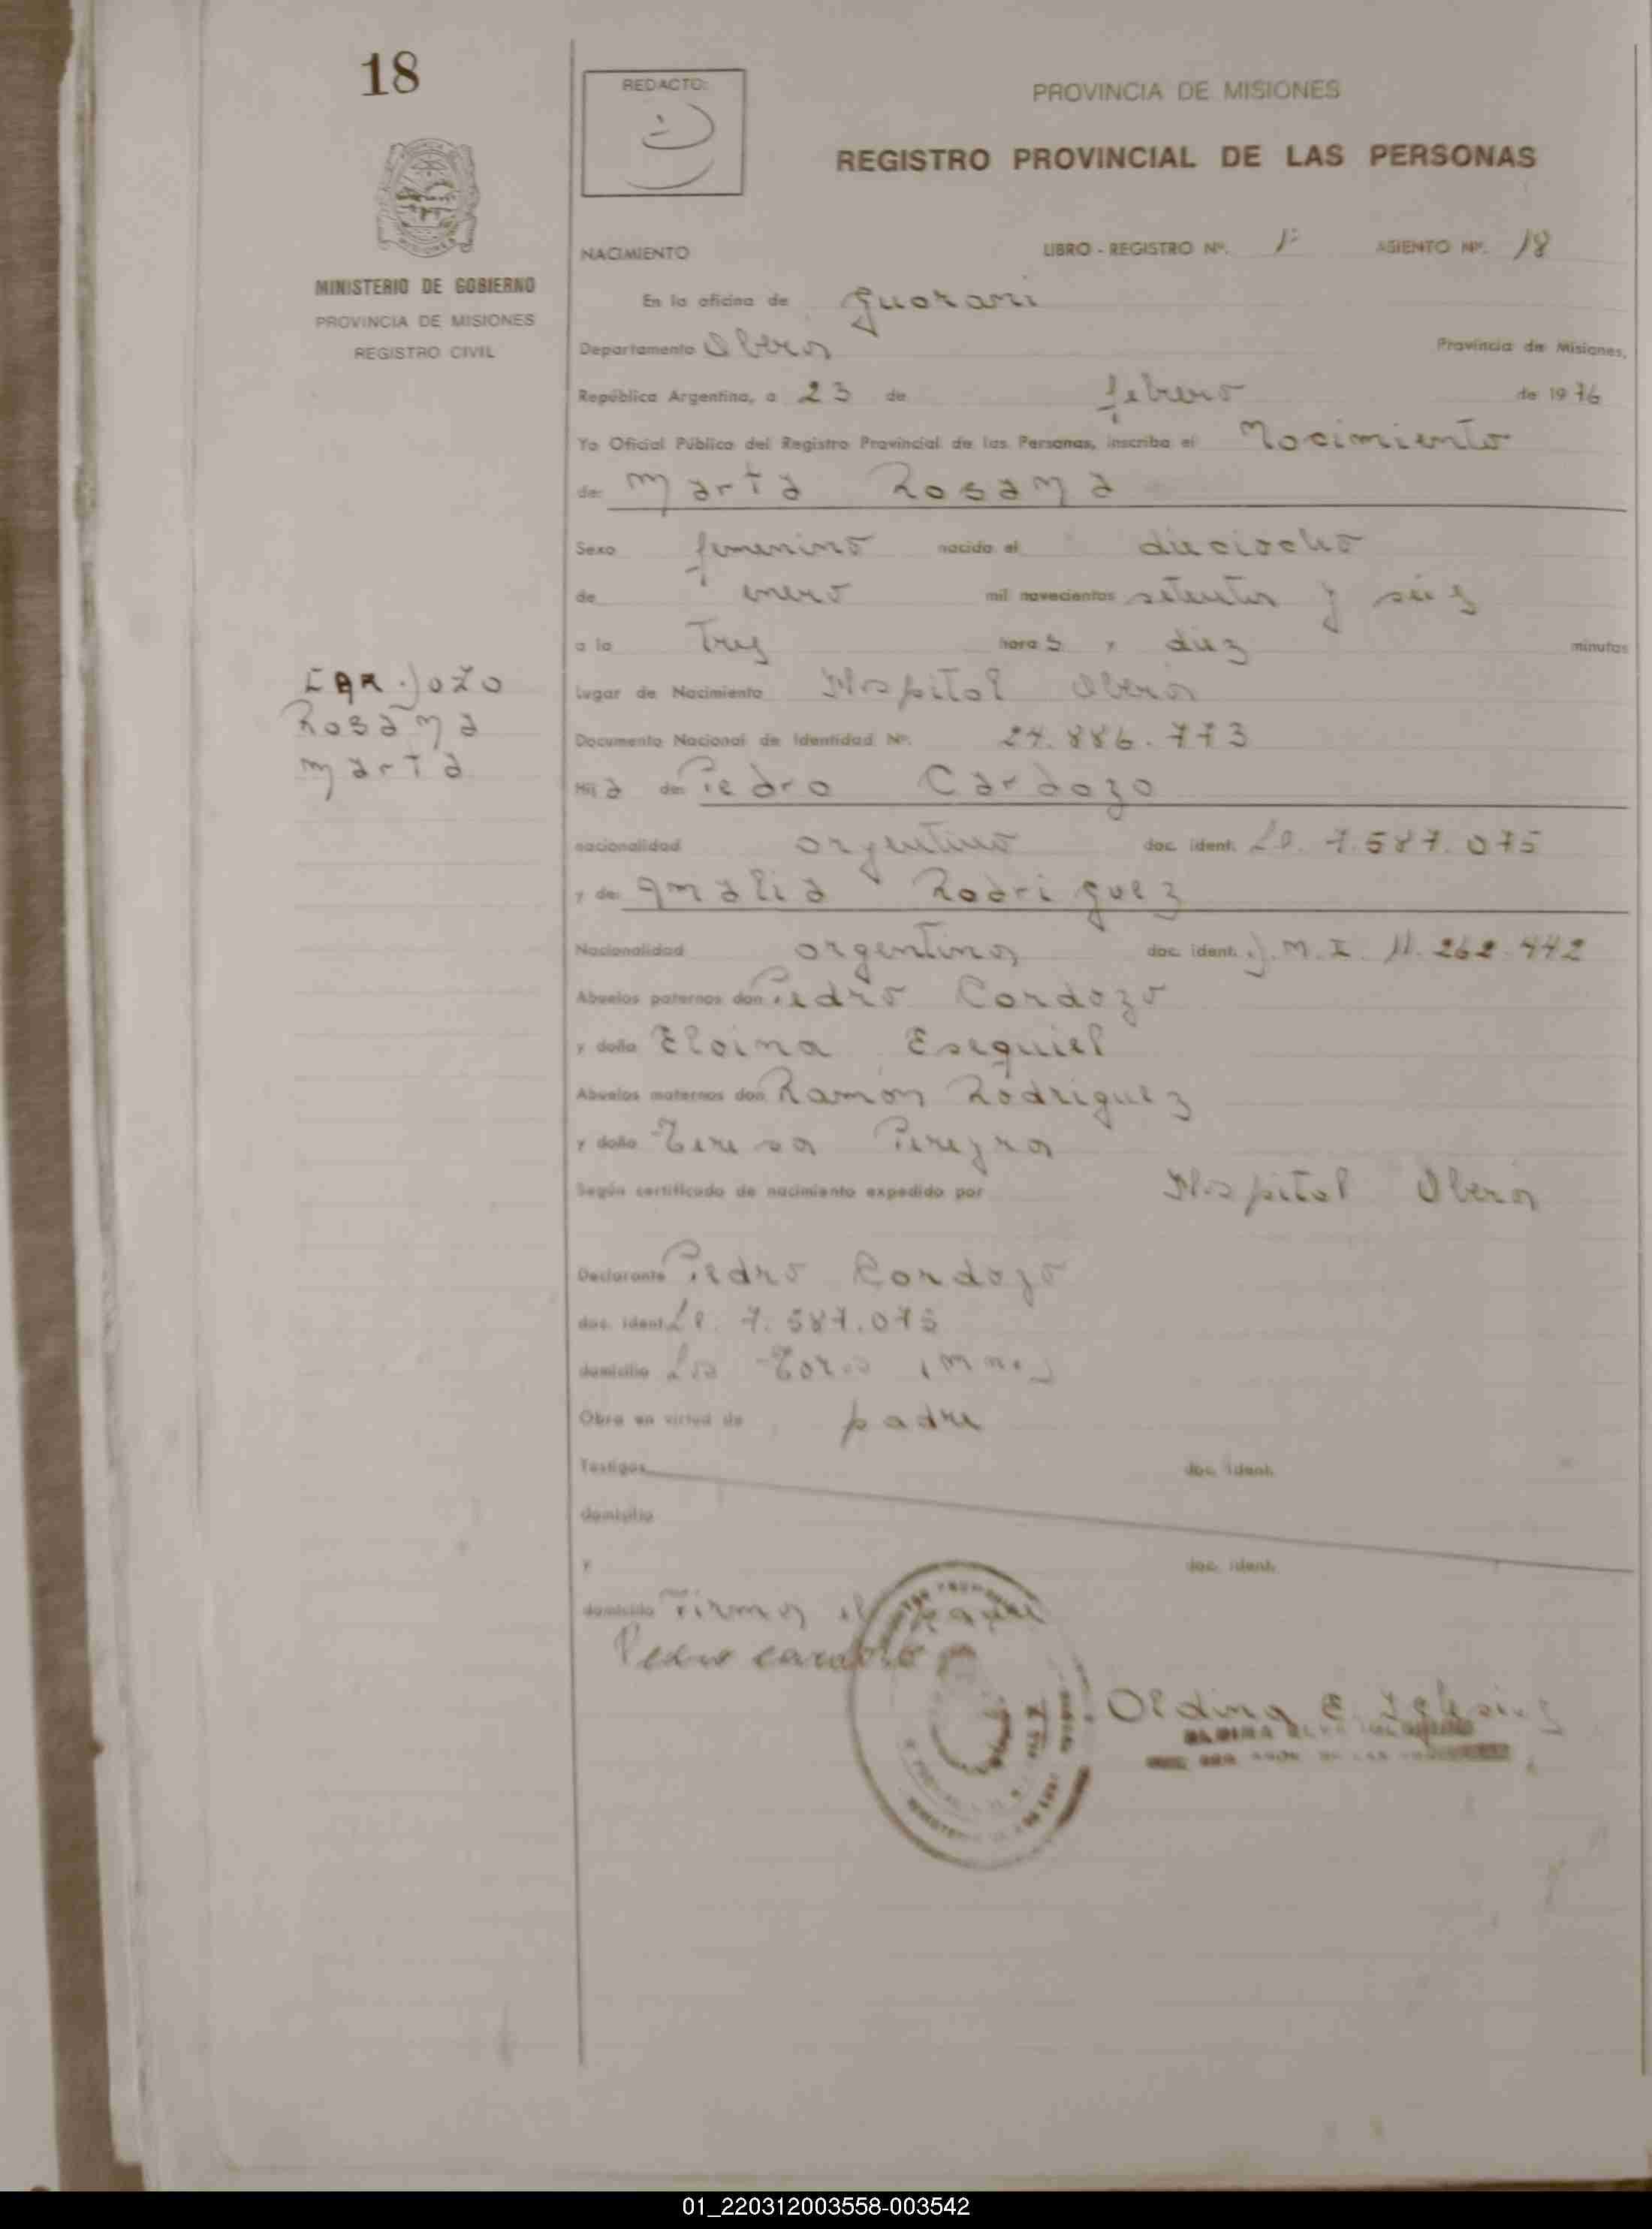 18
REDACTO:
PROVINCIA DE MISIONES
REGISTRO PROVINCIAL DE LAS PERSONAS
MINISTERIO DE GOBIERNO
PROVINCIA DE MISIONES
REGISTRO CIVIL
NACIMIENTO LIBRO - REGISTRO Nº. 1º ASIENTO Nº. 18
En la oficina de Guarani
Departamento Oberá Provincia de Misiones,
República Argentina, a 23 de febrero de 1976
Yo Oficial Público del Registro Provincial de las Personas, inscribo el Nacimiento
de: Marta Rosana
Sexo femenino nacido el dieciocho
de enero mil novecientos setenta y seis
a la Tres hora s y diez minutos
Lugar de Nacimiento Hospital Oberá
Documento Nacional de Identidad Nº. 24.886.773
CARDOZO
Rosana
Marta
Hij a de: Pedro Cardozo
nacionalidad argentino doc. ident. L.E. 7.587.075
y de: Amalia Rodriguez
Nacionalidad argentina doc. ident. D.M.I. 11.262.442
Abuelos paternos don Pedro Cardozo
y doña Eloina Esequiel
Abuelos maternos don Ramón Rodriguez
y doña Teresa Pereyra
Según certificado de nacimiento expedido por Hospital Oberá
Declarante Pedro Cardozo
doc. ident. L.E. 7.587.075
domicilio Los
Obra en virtud de padre
Testigos doc. ident.
domicilio
y doc. ident.
domicilio Firma el padre
Pedro cardozo
Oldina E. Iglesias
01_220312003558-003542